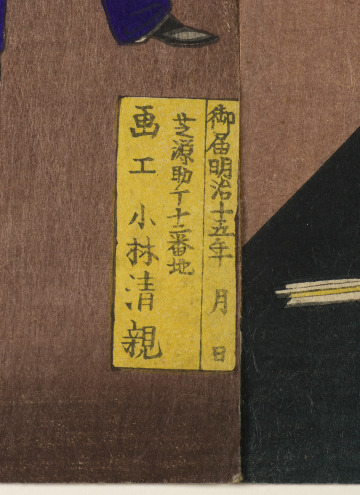 御届明治十五年 月 日
芝源助丁十二番地
画工 小林清親